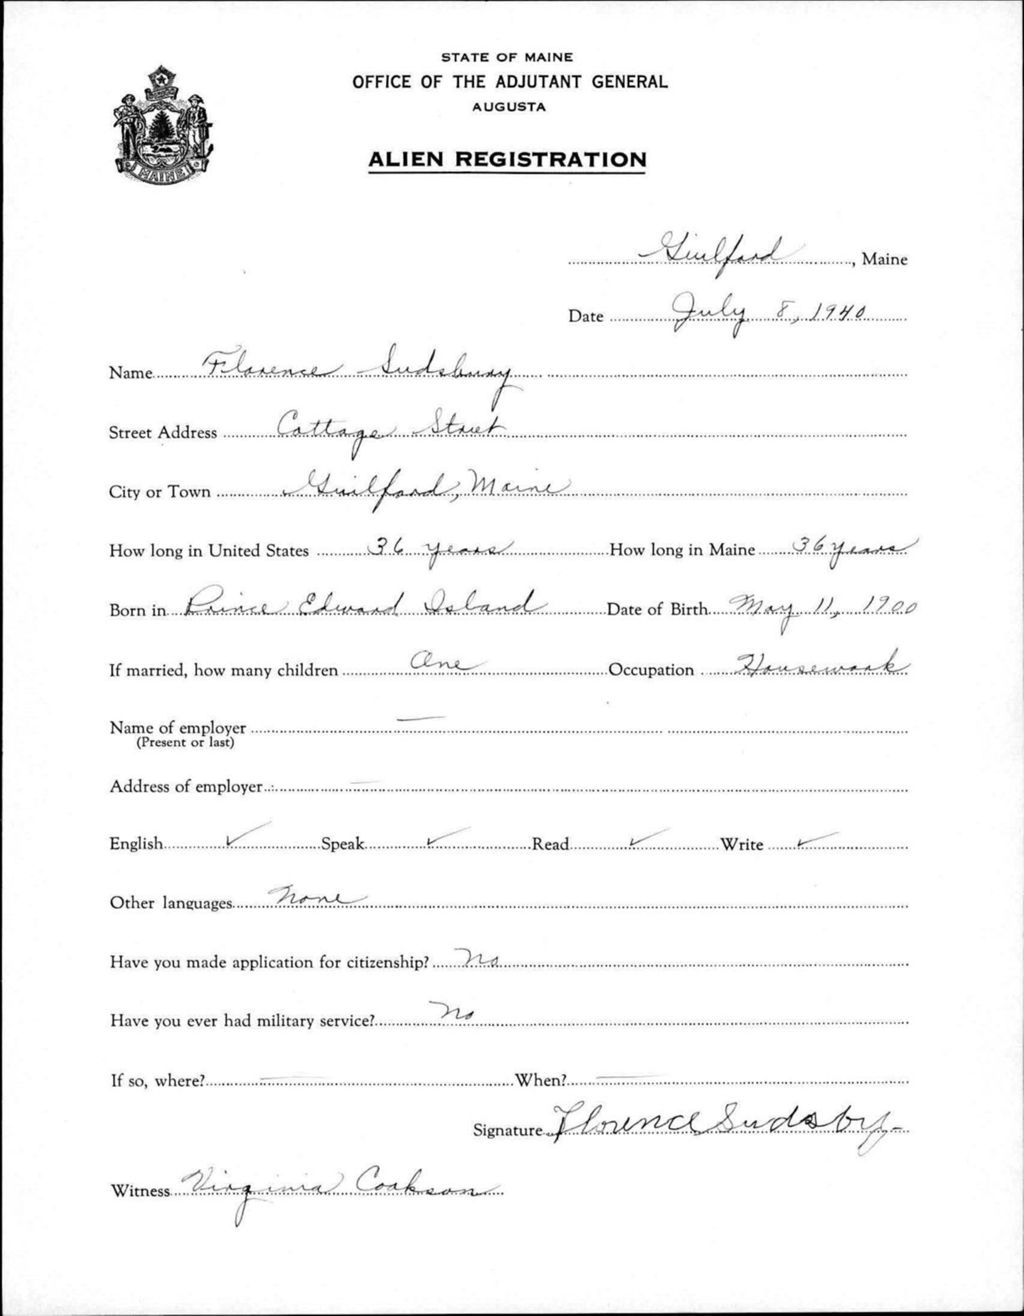 STATE OF MAINE
OFFICE OF THE ADJUTANT GENERAL
AUGUSTA
ALIEN REGISTRATION
MAINE
Guilford, Maine
Date July 8, 1940
Name Florence Sudsbury
Street Address Cottage Street
City or Town Guilford, Maine
How long in United States 36 years How long in Maine 36 years
Born in Prince Edward Island Date of Birth May 11, 1900
If married, how many children One Occupation Housework
Name of employer —
(Present or last)
Address of employer —
English ✓ Speak ✓ Read ✓ Write ✓
Other languages None
Have you made application for citizenship? No
Have you ever had military service? No
If so, where? — When? —
Signature Florence Sudsby
Witness Virginia Cookson